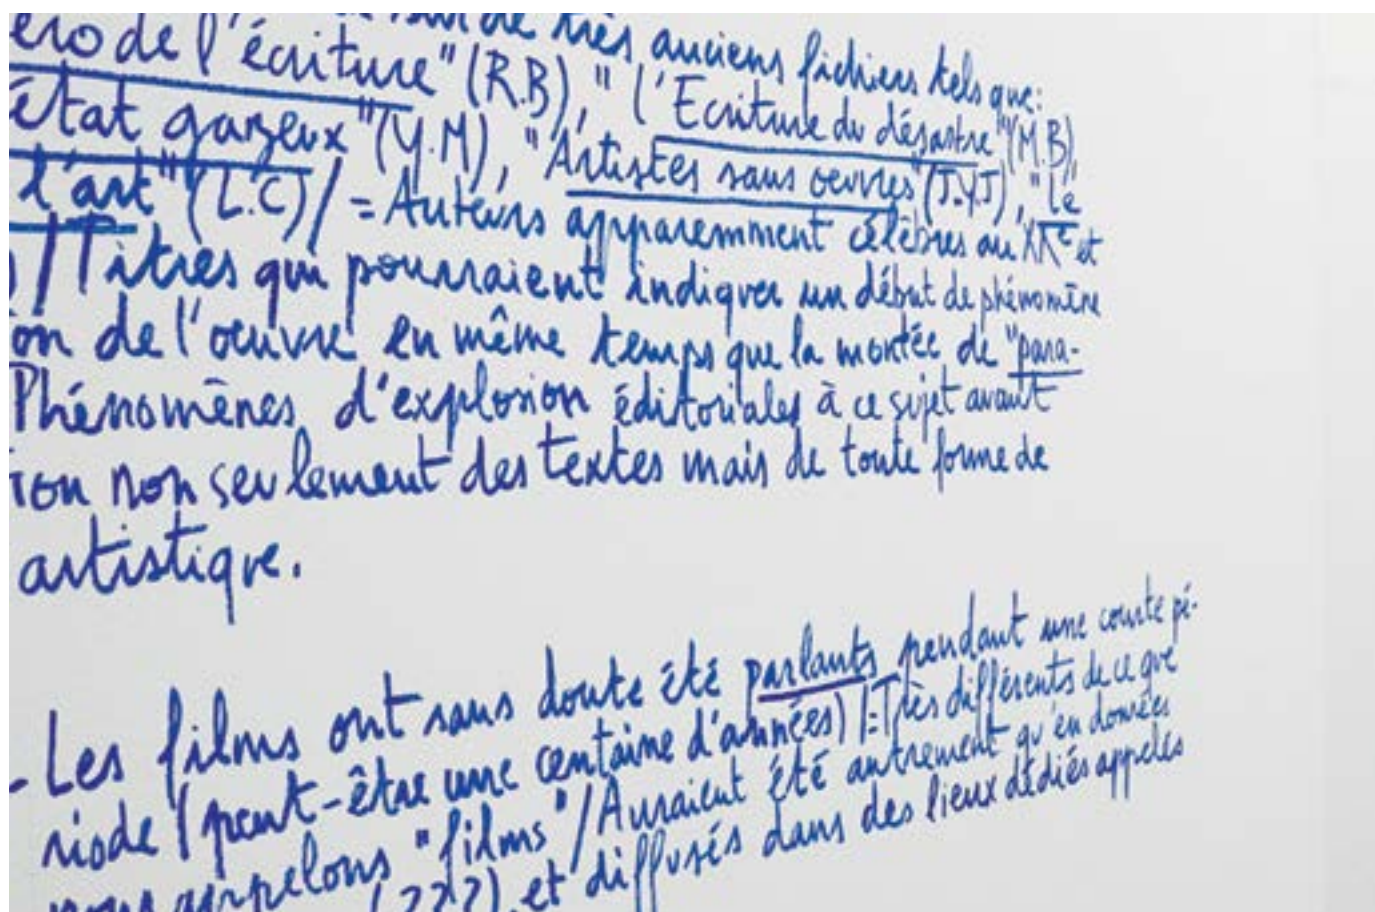 de très anciens fichiers tels que:
éro de l'écriture" (R.B), "l'Ecriture du désastre" (M.B),
état gazeux" (Y.M), "Artistes sans oeuvres" (J.Y.J), "Le
l'art" (L.C) / = Auteurs apparemment célèbres au XXe et
/ Titres qui pourraient indiquer un début de phénomène
on de l'oeuvre en même temps que la montée de "para-
Phénomènes d'explosion éditoriales à ce sujet avant
ion non seulement des textes mais de toute forme de
artistique.
- Les films ont sans doute été parlants pendant une courte pé-
riode (peut-être une centaine d'années) /=Très différents de ce que
nous appelons "films" / Auraient été autrement qu'en données
(???) et diffusés dans des lieux dédiés appelés